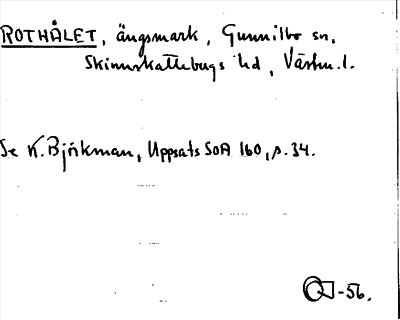 ROTHÅLET, ängsmark, Gunnilbo sn,
Skinnskattebergs hd, Västm. l.
Se K. Björkman, Uppsats SOA 160, s. 34.
-56.